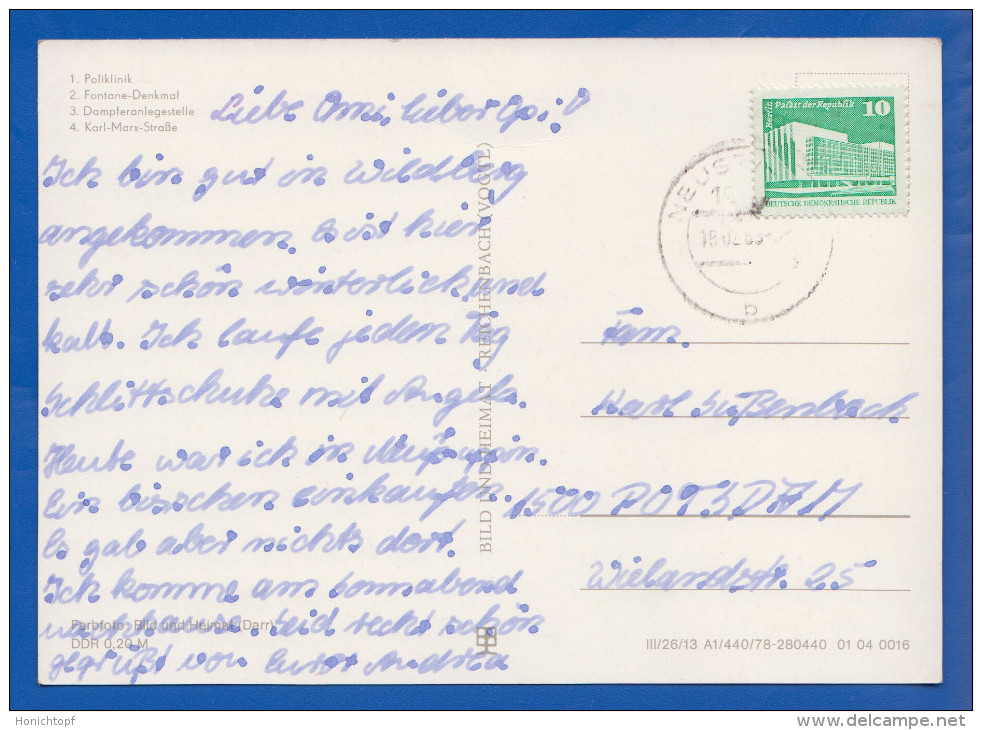 1. Poliklinik
2. Fontane-Denkmal
3. Dampferanlegestelle
4. Karl-Marx-Straße
Liebe Omi, lieber Opi!
Ich bin gut in Wildberg
angekommen. Es ist hier
sehr schön winterlich und
kalt. Ich laufe jeden Tag
Schlittschuhe mit Angela.
Heute war ich in
Ein bisschen einkaufen.
Es gab aber nichts dort.
Ich komme am Sonnabend
nachhause. Seid recht schön
gegrüßt von Eurer Andrea
Farbfoto: Bild und Heimat (Darr)
DDR 0,20 M
BILD UND HEIMAT · REICHENBACH (VOGTL)
Berlin Palast der Republik 10
DEUTSCHE DEMOKRATISCHE REPUBLIK
b
Fam.
Karl Süßenbach
1500 POTSDAM
Wielandstr. 25
III/26/13 A1/440/78-280440 01 04 0016
Honichtopf
www.delcampe.net